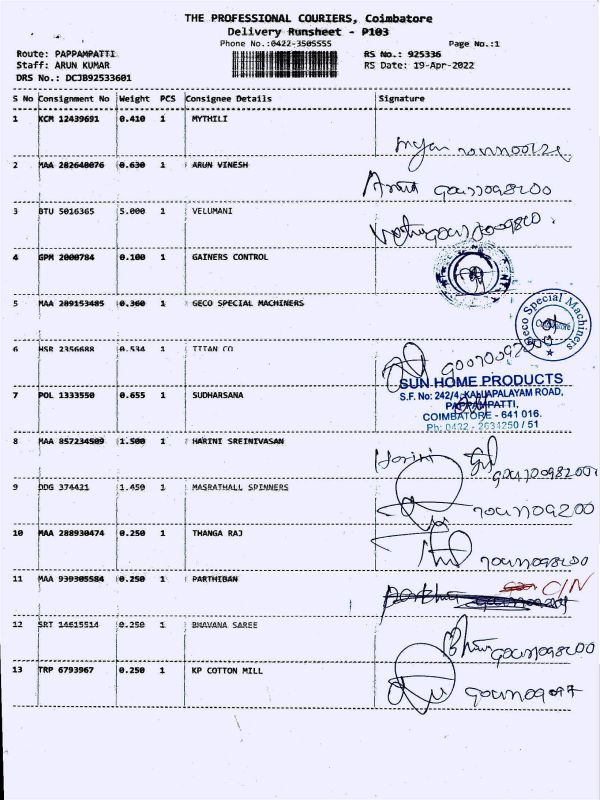 THE PROFESSIONAL COURIERS, Coimbatore
Delivery Runsheet - P103
Phone No.:0422-3505555
Page No.:1
Route: PAPPAMPATTI
RS No.: 925336
Staff: ARUN KUMAR
RS Date: 19-Apr-2022
DRS No.: DCJB92533601
S No Consignment No Weight PCS Consignee Details Signature
1 KCM 12439691 0.410 1 MYTHILI
2 MAA 282640076 0.630 1 ARUN VINESH
3 BTU 5016365 5.000 1 VELUMANI
4 GPM 2000784 0.100 1 GAINERS CONTROL
5 MAA 289153485 0.360 1 GECO SPECIAL MACHINERS
Geco Special Machiners
Coimbatore
6 HSR 2356688 0.534 1 TITAN CO
7 POL 1333550 0.655 1 SUDHARSANA
SUN HOME PRODUCTS
S.F. No: 242/4, KALIAPALAYAM ROAD,
PAPPAMPATTI,
COIMBATORE - 641 016.
Ph: 0422 - 2634250 / 51
8 MAA 857234509 1.500 1 HARINI SREINIVASAN
Harini
9 DDG 374421 1.450 1 MASRATHALL SPINNERS
10 MAA 288930474 0.250 1 THANGA RAJ
11 MAA 939305584 0.250 1 PARTHIBAN
C/N
12 SRT 14615514 0.250 1 BHAVANA SAREE
13 TRP 6793967 0.250 1 KP COTTON MILL